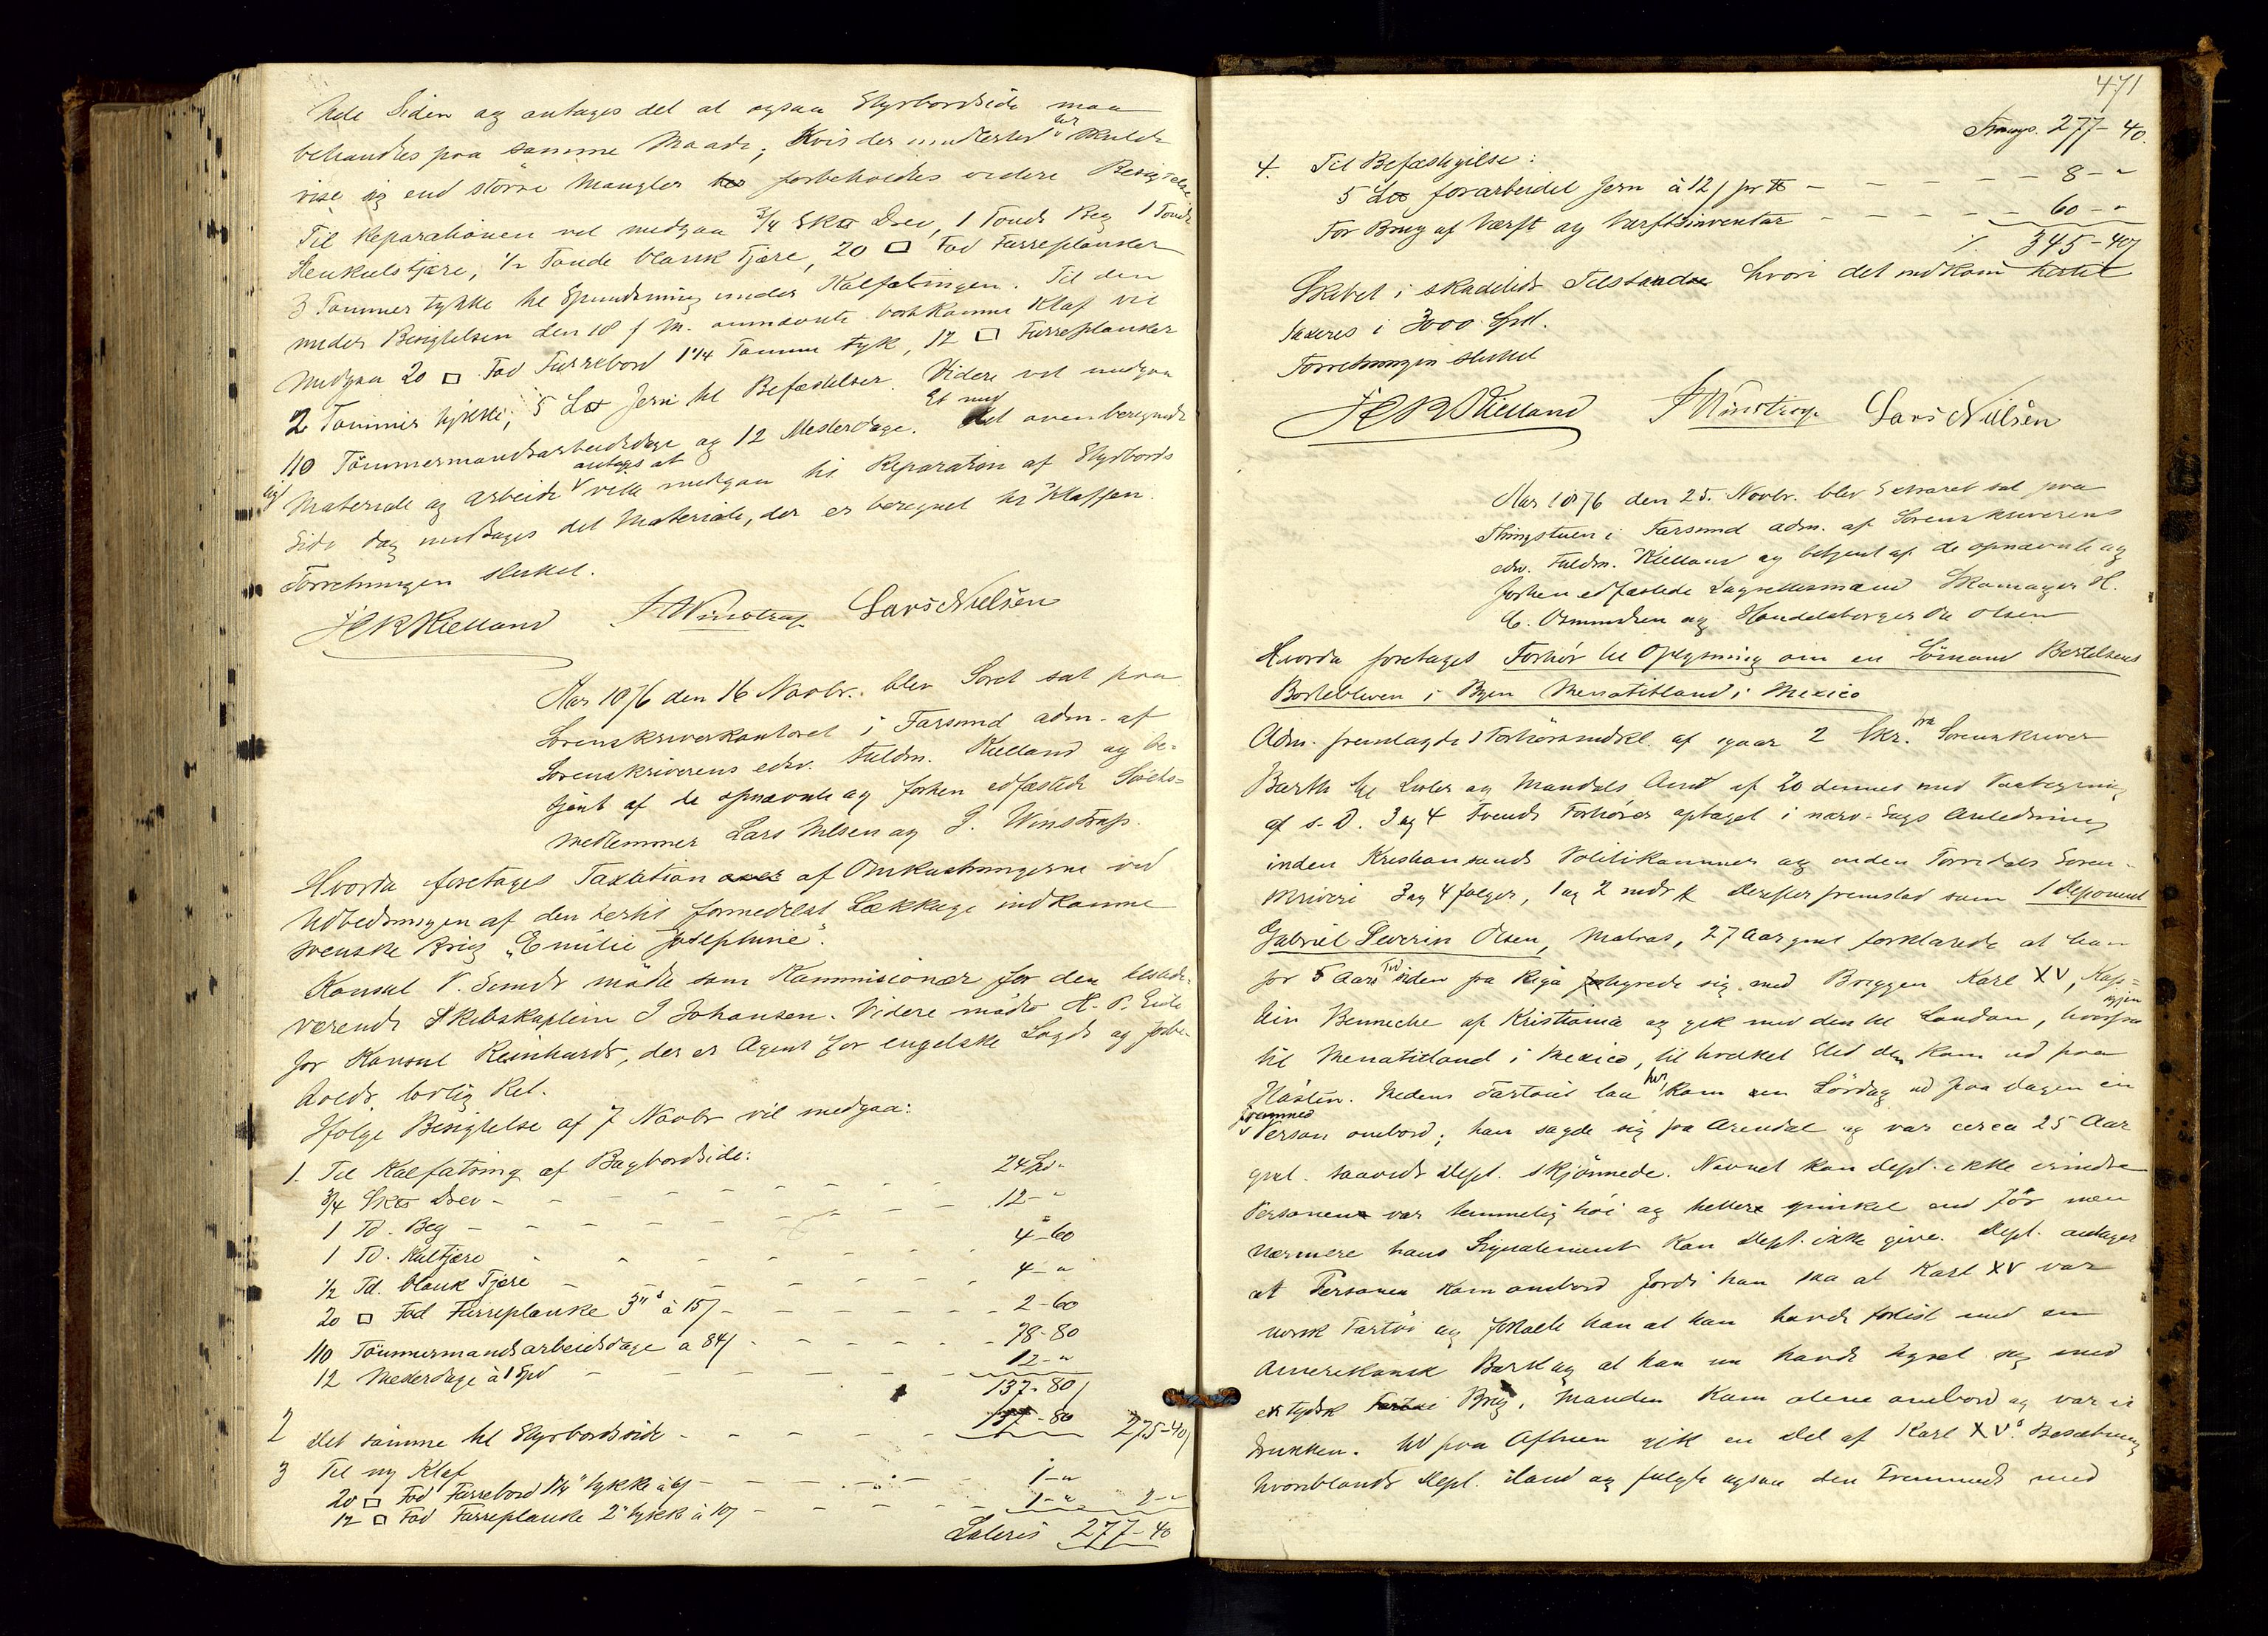 hele Siden og antages det at ogsaa Styrbordside maa
behandles paa samme Maade; hvis der imidlertid her skulde
vise sig end större Mangler forbeholdes videre Besigtelse
Til Reparationen vil medgaa 3/4 Sk℔ Drev, 1 Tønde Beg 1 Tønde
Stenkulstjære, 1/2 Tønde blank Tjære, 20 □ Fod Furreplanker
3 Tommer tykke til Spundsning under Kalfatringen. Til den
under Besigtelsen den 10 f. M. omnævnte bortkomne Klaf vil
medgaa 20 □ Fod Furrebord 1 1/4 Tomme tyk, 12 □ Furreplanker
2 Tommer tykke, 5 L℔ Jern til Befæstelser. Videre vil medgaa
110 Tömmermandsarbeidsdage og 12 Mesterdage. Et med det ovenberegnede
Materiale og Arbeide antages at ville medgaa til Reparation af Styrbords
Side dog undtages det Materiale, der er beregnet til Klaffen.
Forretningen sluttet.
H C R Kielland J Winstrup Lars Nielsen
Aar 1876 den 16 Novbr. blev Söret sat paa
Sorenskriverkontoret i Farsund adm. af
Sorenskriverens edsv. Fuldm. Kielland og be-
tjent af de opnævnte og forhen edfæstede Sörets-
medlemmer Lars Nilsen og J. Winstrup.
Hvorda foretages Taxation over af Omkostningerne ved
Udbedringen af den hertil formedelst Lækkage indkomne
svenske Brig "Emilie Josephine".
Konsul P. Sundt mödte som Kommissionær for den tilstede-
værende Skibskaptein J Johansen. Videre mödte H. P. Eide
for Konsul Reinhardt, der er Agent for engelske Loyds og forbe-
holdt lovlig Ret.
Ifölge Besigtelse af 7 Novbr vil medgaa:
1. Til Kalfatring af Bagbordside:
3/4 Sk℔ Drev - - - - - 24 Spd "
1 Td. Beg - - - - - 12 - "
1 Td. Kultjære - - - - 4 - 60
1/2 Td. blank Tjære - - - - 4 - "
20 □ Fod Furreplanke 3" à 15 ʃ - - - - 2 - 60
110 Tömmermandsarbeidsdage a 84 ʃ - - - - 78 - 80
12 Mesterdage à 1 Spd - - - - 12 - "
137 - 80 ʃ
2 Det samme til Styrbordside - - - - 137 - 80 275 - 40 ʃ
3 Til ny Klaf
20 □ Fod Furrebord 1 1/4" tykke à 6 ʃ - - - - 1 - "
12 □ Fod Furreplanke 2" tykke à 10 ʃ - - - - 1 - " 2 - "
Lateris 277 - 40
471
Transp. 277 - 40.
4. Til Befæstigelse:
5 L℔ forarbeidet Jern à 12 ʃ pr ℔ - - - - 8 - "
For Brug af Værft og Værftsinventar - - - - 60 - "
345 - 40 ʃ
Skibet i skadelidt Tilstand hvori det indkom hertil
taxeres i 3000 Spd.
Forretningen sluttet
H C R Kielland J Winstrup Lars Nielsen
Aar 1876 den 25. Novbr. blev Extraret sat paa
Thingstuen i Farsund adm. af Sorenskriverens
edsv. Fuldm. Kielland og betjent af de opnævnte og
forhen edfæstede Lagrettesmænd Skomager H.
C. Osmundsen og Handelsborger Ole Olsen
Hvorda foretages Forhör til Oplysning om en Sömand Bertelsens
Borteblivен i Byen Menatitland i Mexico
Adm. fremlagde 1 Forhörsindkl. af igaar 2 Skr. fra Sorenskriver
Barth til Lister og Mandals Amt af 20 dennes med Paategning
af s. D. 3 og 4 tvende Forhörer optaget i nærv. Sags Anledning
inden Kristiansands Politikammer og inden Torridals Soren-
skriveri 3 og 4 fölger, 1 og 2 Derefter fremstod som 1 Deponent
Gabriel Severin Olsen, Matros, 27 Aar gml forklarede at han
for 5 Aars Tid siden fra Riga forhyrede sig med Briggen Karl XV, Kap-
tein Benneche af Kristiania og gik med den til London, hvorfra igjen
til Menatitland i Mexico, til hvilket Sted den kom ud paa
Hösten. Medens Fartöiet laa her, kom en Lördag ud paa Dagen en
fremmed Person ombord; han sagde sig fra Arendal og var circa 25 Aar
gml. saavidt Dept. skjönnede. Navnet kan Dept. ikke erindre
Personen var temmelig höi og heller spinkel end för men
nærmere hans Signalement kan Dept. ikke give. Dept. antager
at Personen kom ombord fordi han saa at Karl XV var
norsk Fartöi og fortalte han at han havde forlist med en
Amerikansk Bark og at han nu havde hyret sig med
en tydsk Brig. Manden kom alene ombord og var ei
drukken. Ud paa Aftenen gik en Del af Karl XVs Besætning
hvoriblandt Dept. iland og fulgte ogsaa den Fremmede med